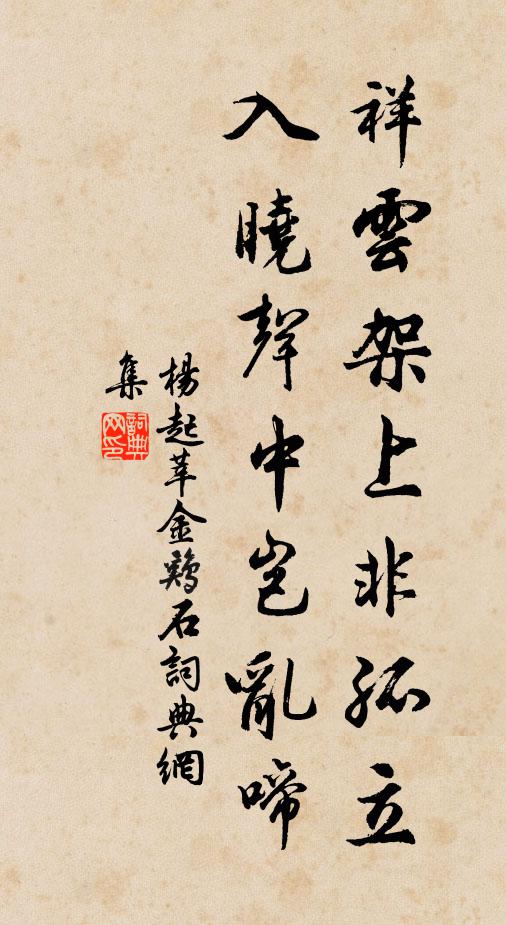 祥雲架上非孤立
入曉聲中豈亂啼
楊起莘金鷄石詞典網
集
詞典網印